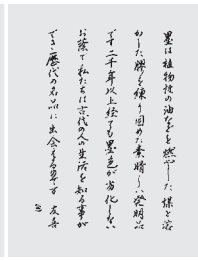 墨は植物性の油などを燃やした煤と溶
かした膠を練り固めた素晴しい発明品
です二千年以上経ても墨色が劣化しない
お蔭で私たちは古代の人の生活を知る事が
でき歴代の名品に出会えるのです